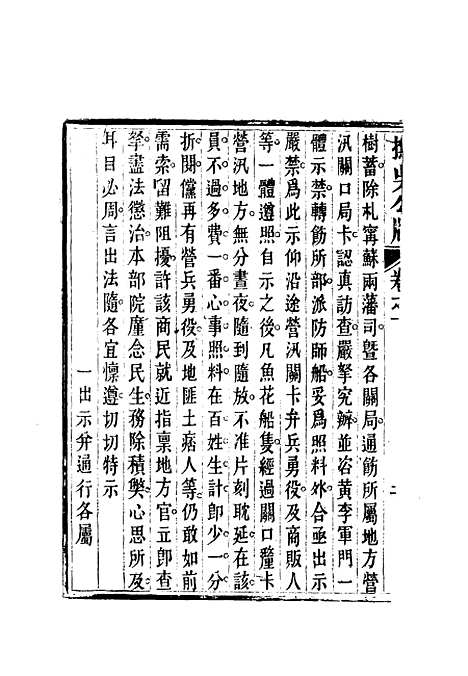 撫吳公牘 卷
樹蓄除札寗蘇兩藩司。曁各關局。通飭所屬地方營
汛關口局卡認真訪查。嚴拏究辦。並咨黃李軍門一
體示禁。轉飭所部。派防師船。妥爲照料。外合亟出示
嚴禁。爲此示仰沿途營汛關卡弁兵勇役。及商販人
等一體遵照。自示之後。凡魚花船隻。經過關口釐卡
營汛地方。無分晝夜。隨到隨放。不准片刻耽延。在該
員。不過多費一番心事。照料在百姓生計。即少一分
折閱。儻再有營兵勇役。及地匪土痞人等。仍敢如前
需索。留難阻擾。許該商民就近指稟地方官。立卽查
拏盡法懲治。本部院廑念民生。務除積獘。心思所及。
耳目必周。言出法隨。各宜懍遵。切切特示
一出示并通行各屬